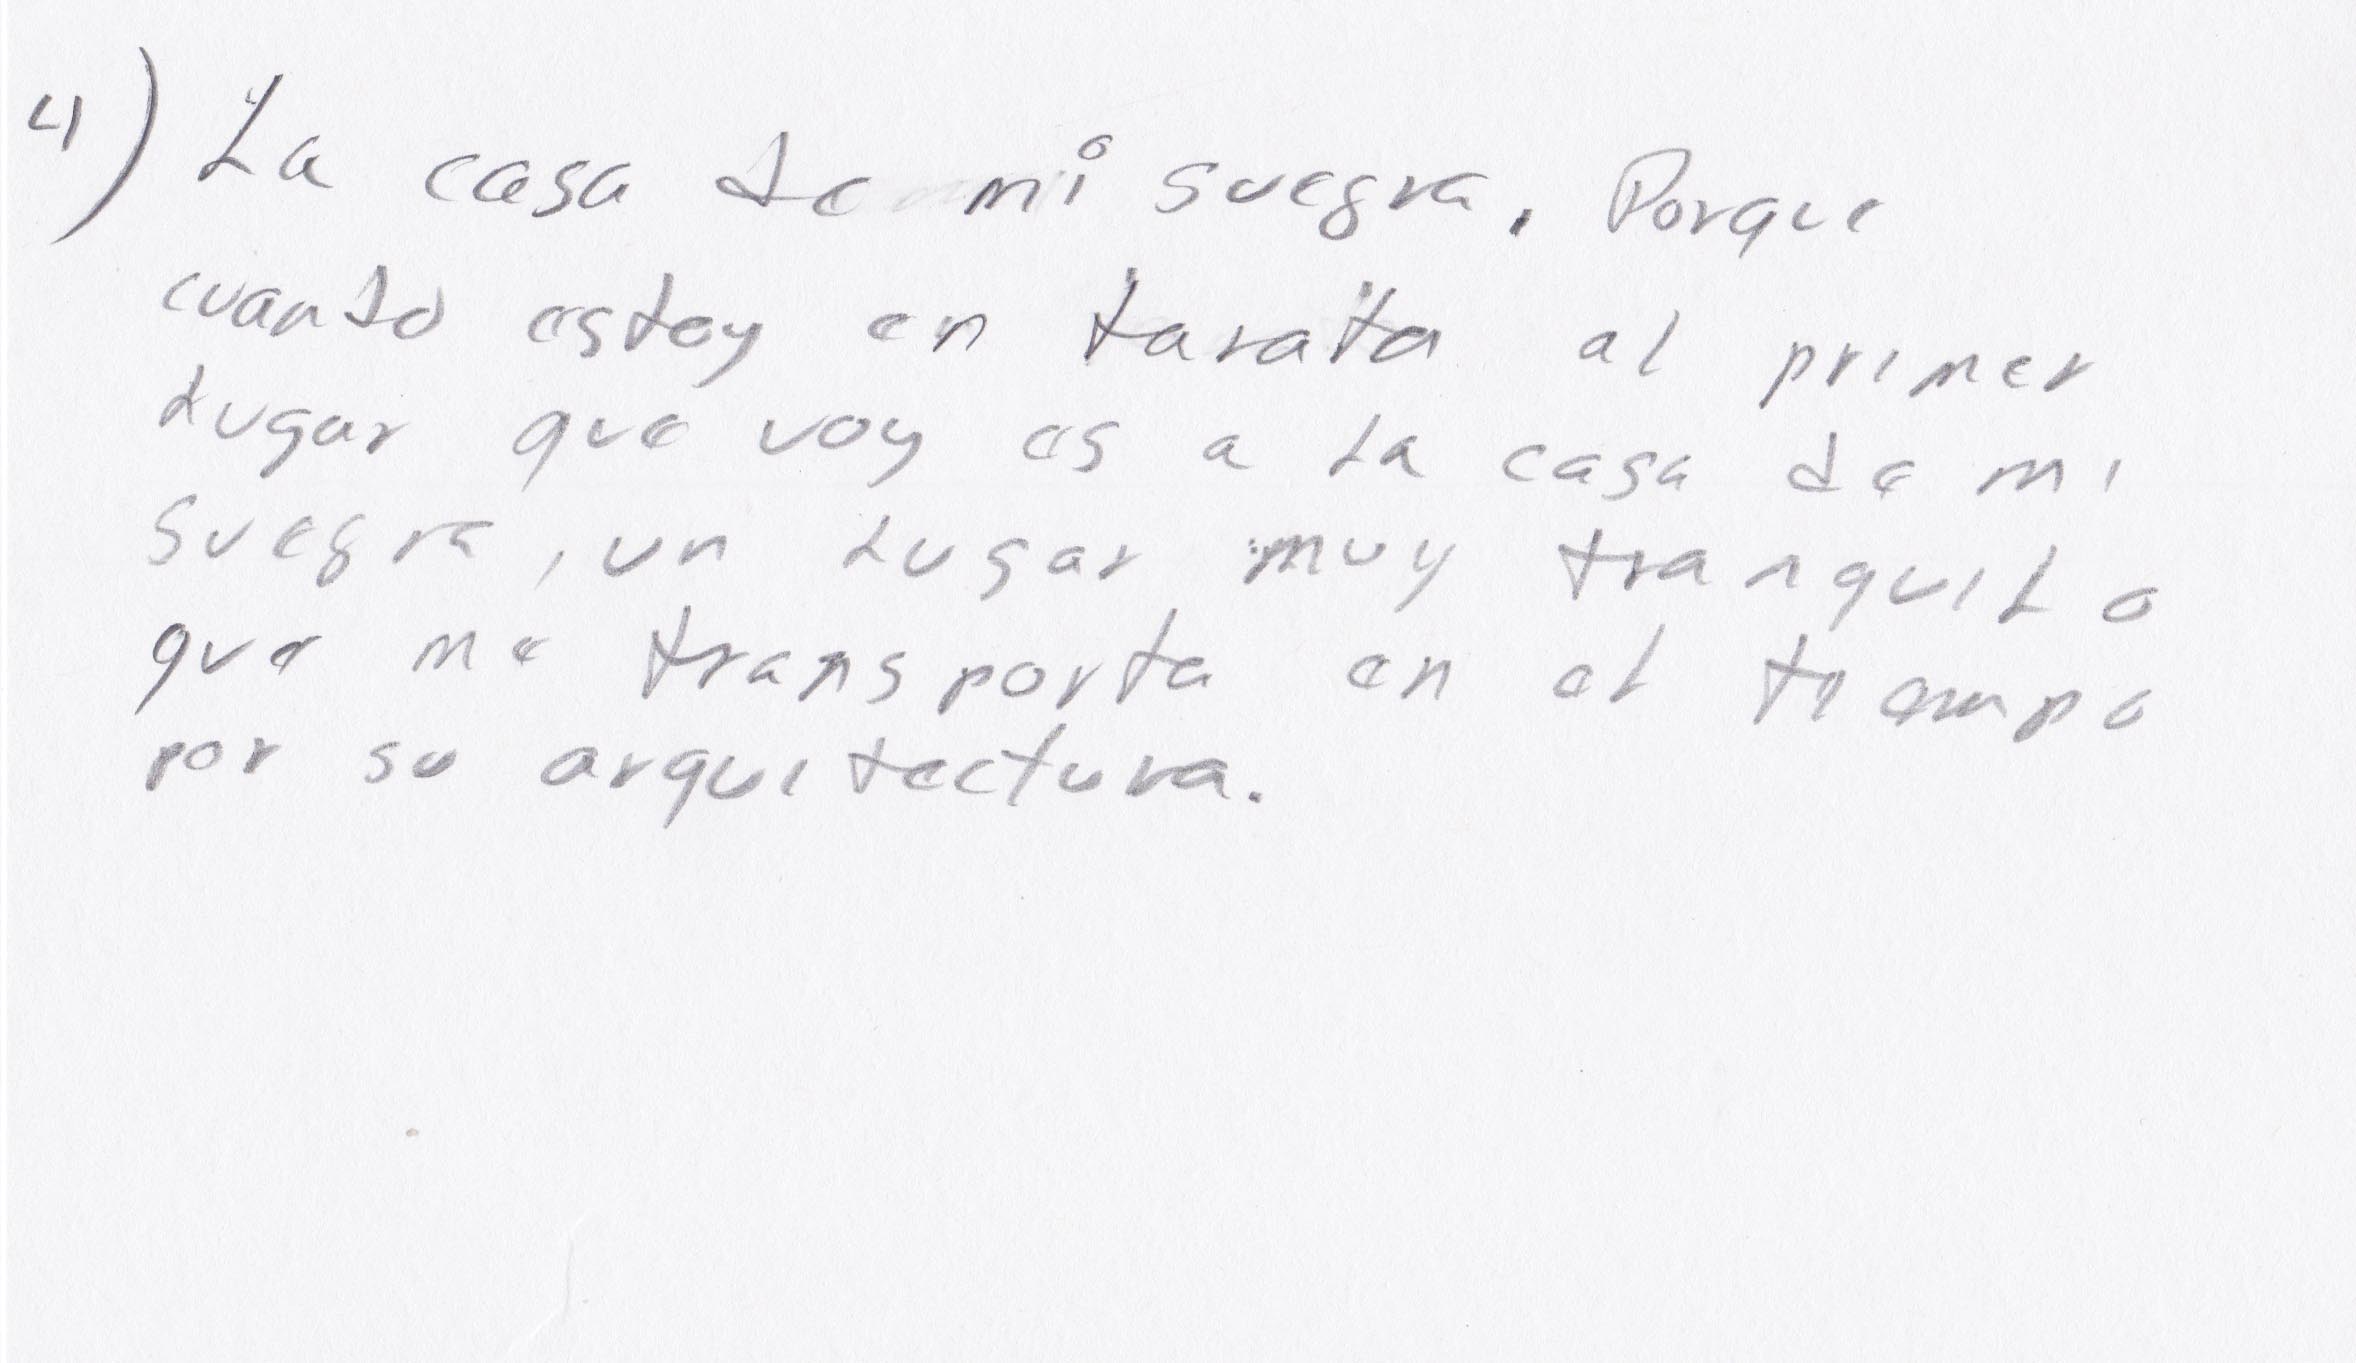 4) La casa de mi suegra. Porque
cuando estoy en tarata al primer
Lugar que voy es a La casa de mi
suegra, un Lugar muy tranquiLo
que me transporta en el tiempo
por su arquitectura.